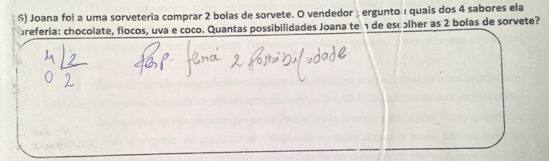 6) Joana foi a uma sorveteria comprar 2 bolas de sorvete. O vendedor perguntou quais dos 4 sabores ela
preferia: chocolate, flocos, uva e coco. Quantas possibilidades Joana tem de escolher as 2 bolas de sorvete?
4 2 Resp. terá 2 Possibilidade
0 2